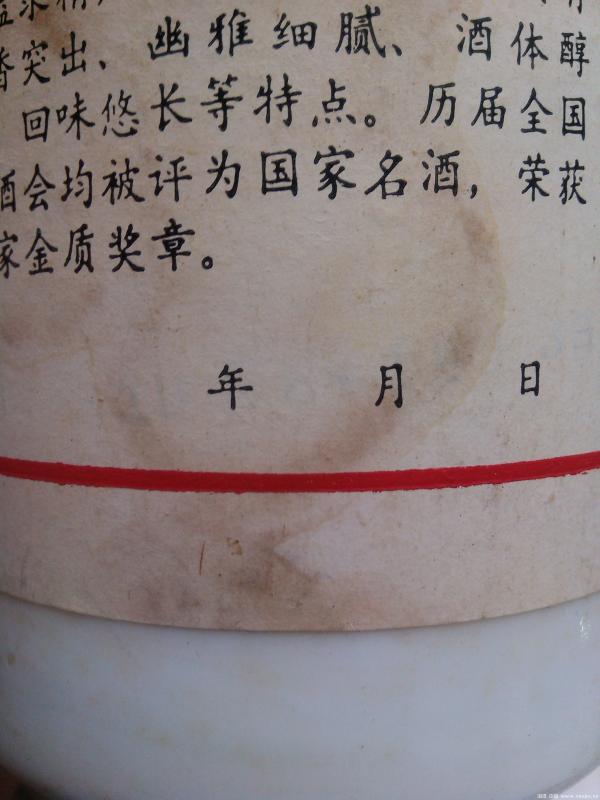 香突出、幽雅细腻、酒体醇
回味悠长等特点。历届全国
酒会均被评为国家名酒，荣获
家金质奖章。
年 月 日